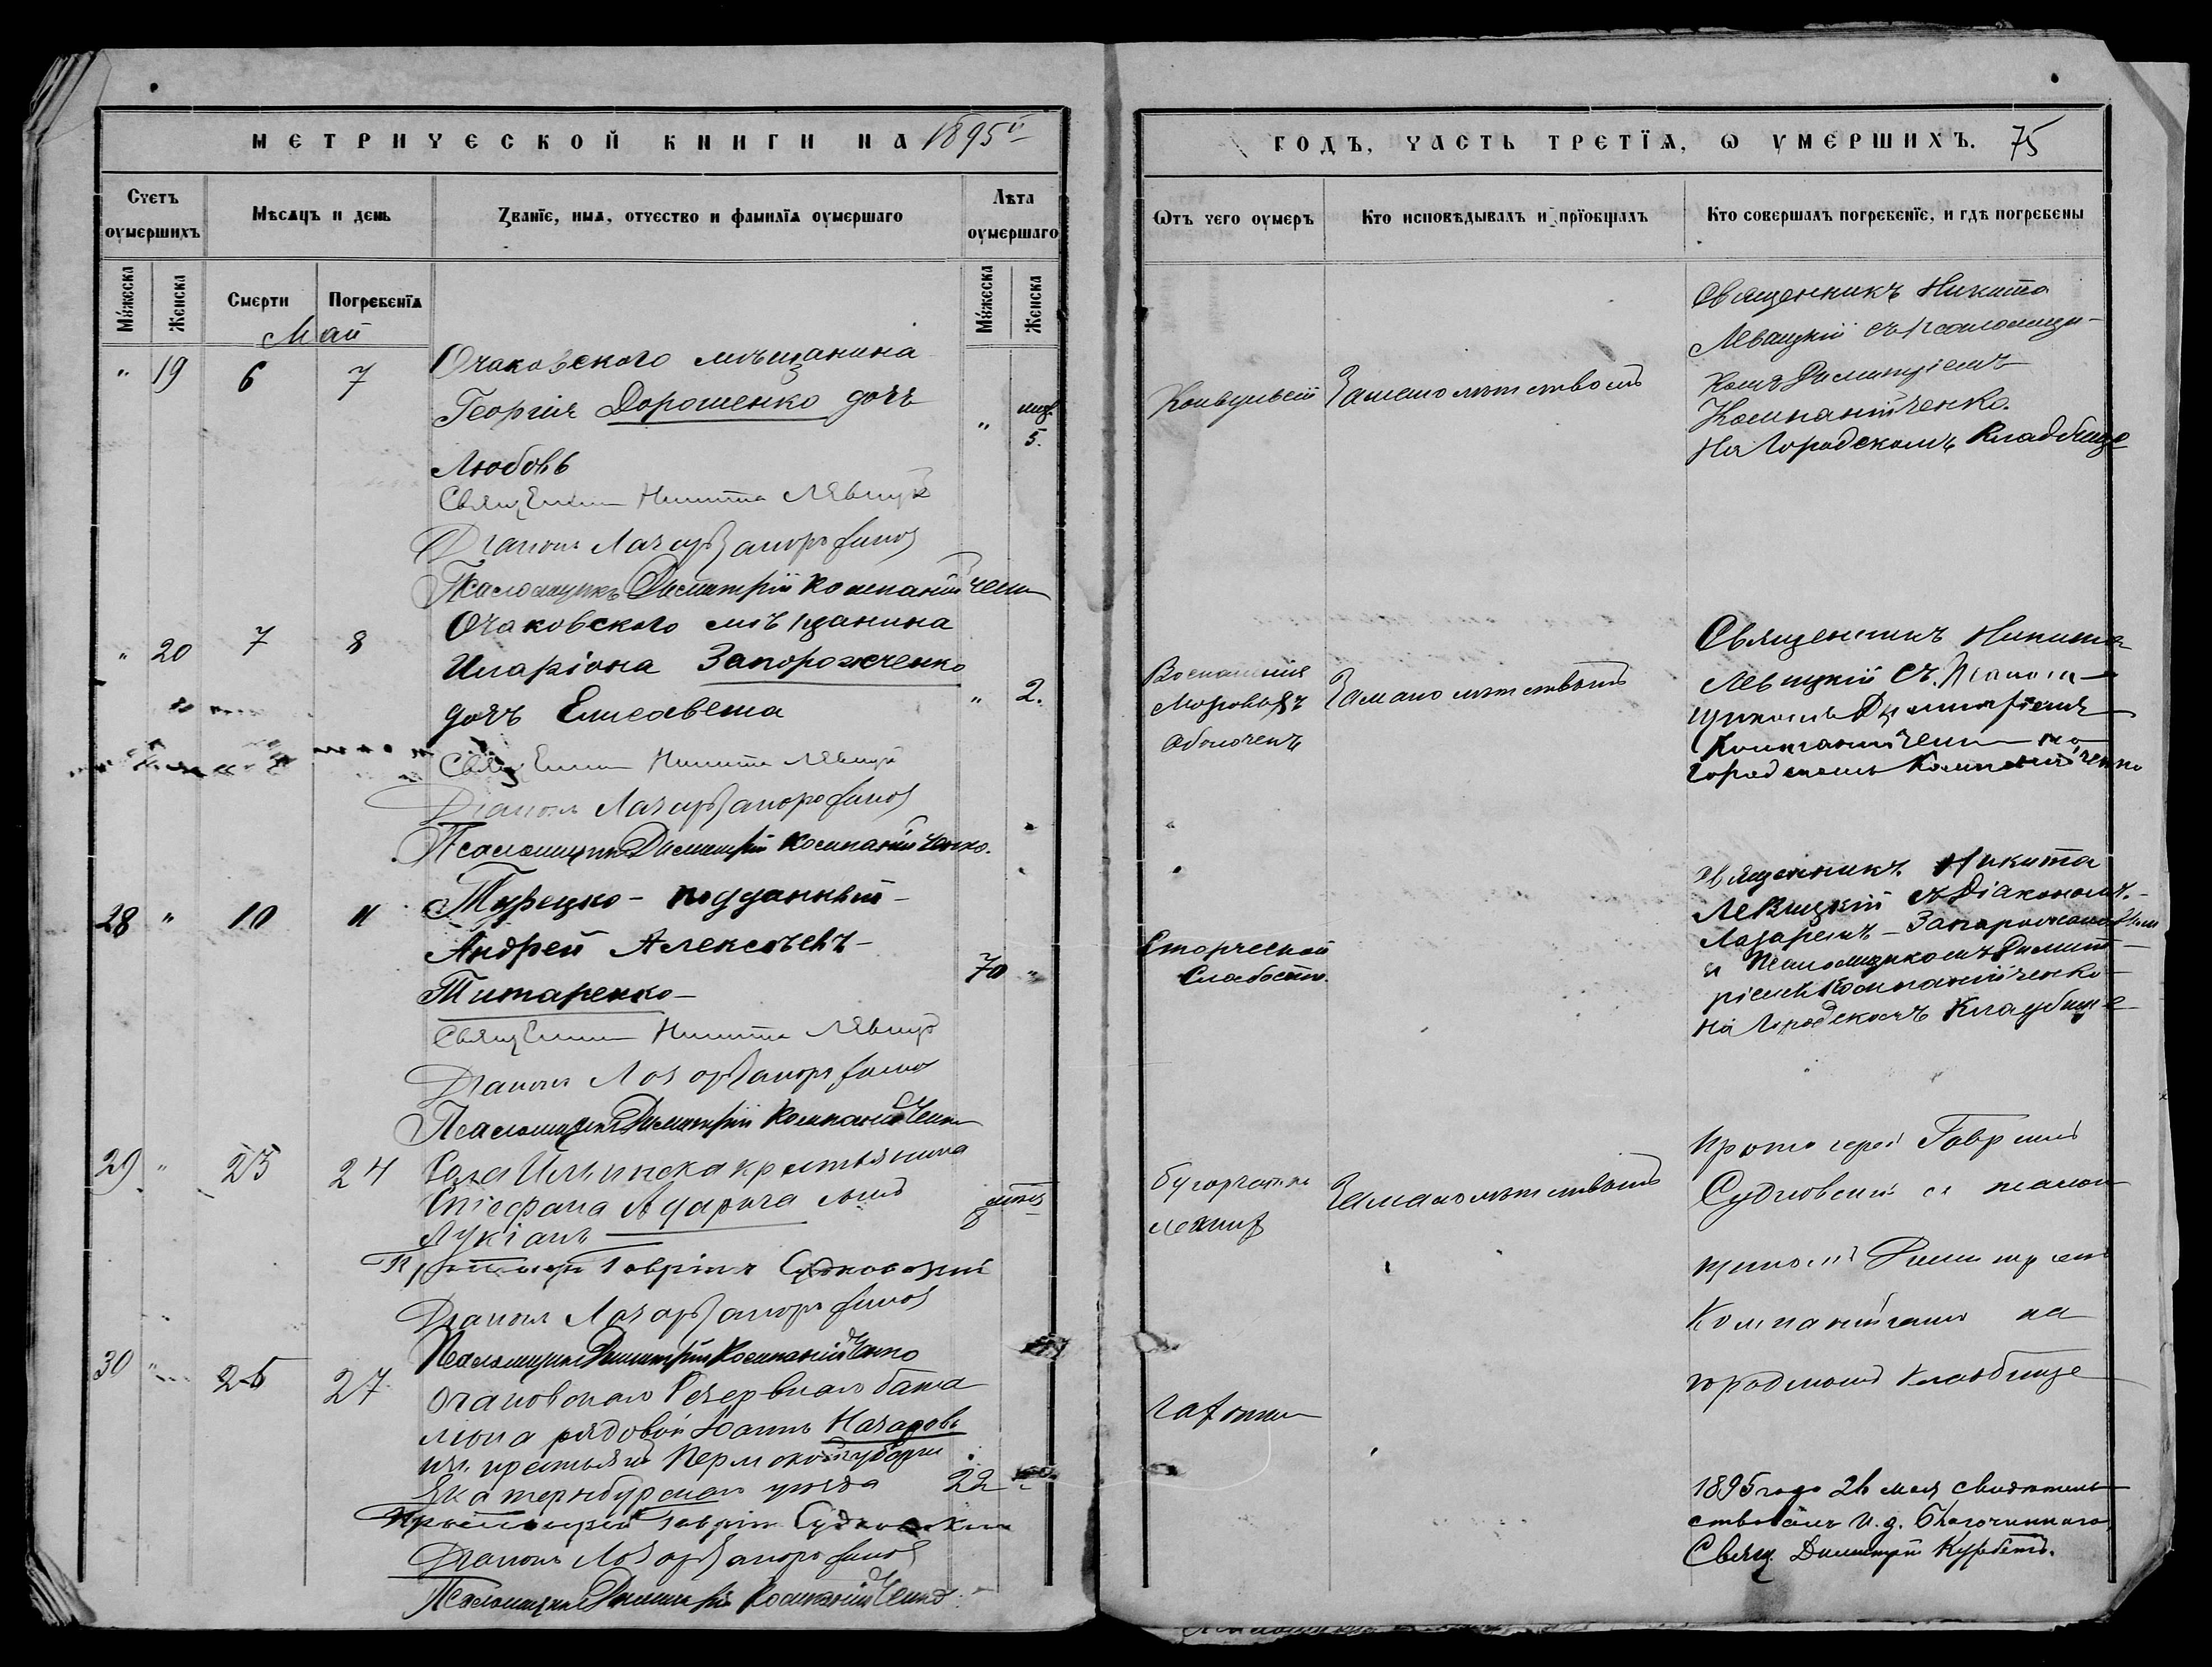 МЕТРИЧЕСКОЙ КНИГИ НА 1895й
ГОДЪ, ЧАСТЬ ТРЕТЇѦ, Ѡ УМЕРШИХЪ. 75
Счетъ оумершихъ
Мѣсѧцъ и день
Званїе, имѧ, отчество и фамилїѧ оумершаго
Лѣта оумершаго
Ѿтъ чего оумеръ
Кто исповѣдывалъ и прїобщалъ
Кто совершалъ погребенїе, и гдѣ погребены
Мꙋжеска
Женска
Смерти
Погребенїѧ
Мꙋжеска
Женска
Май
" 19 6 7
Очаковскаго мѣщанина
Георгія Дорошенко дочь
Любовь
" 5.
Священникъ Никита Левицкій
Діаконъ Лазарь Запорожановъ
Псаломщикъ Димитрій Компанійченко
Конвульсій
Замалолѣтствомъ
Священникъ Никита
Левицкій съ псаломщи-
комъ Димитріемъ
Компанійченко.
На Городскомъ Кладбище
" 20 7 8
Очаковского мѣщанина
Иларіона Запорожченко
дочь Елисавета
" 2.
Священникъ Никита Левицкій
Діаконъ Лазарь Запорожановъ
Псаломщикъ Димитрій Компанійченко.
Воспаленія
Мозговыхъ
Оболочекъ
Замалолѣтствомъ
Священникъ Никита
Левицкій съ Псалом-
щикомъ Димитріемъ
Компанійченко на
Городскомъ Компанійченко
28 " 10 11
Турецко-подданный-
Андрей Алексѣевъ-
Титаренко-
70 "
Священникъ Никита Левицкій
Діаконъ Лазарь Запорожановъ
Псаломщикъ Димитрій Компанійченко
Старческой
Слабости.
Священникъ Никита
Левицкій съ Діакономъ-
Лазаремъ-Запорожановымъ
и Псаломщикомъ Димит-
ріемъ Компанійченко-
на Городскомъ Кладбище
29 " 23 24
Села Ильинска крестьянина
Стефана сынъ
Лукіанъ
8
Протоіерей Гавріилъ Судковскій
Діаконъ Лазарь Запорожановъ
Псаломщикъ Димитрій Компанійченко
Замалолѣтствомъ
Протоіерей Гавріилъ
Судковскій съ псалом
щикомъ Димитріемъ
Компанійченко на
городскомъ кладбище
30 " 26 27
Очаковскаго Резервнаго бата
ліона рядовой Іоаннъ Назаровъ
изъ крестьянъ Пермской губерніи
Екатеринбурскаго уѣзда 22 "
Протоіерей Гавріилъ Судковскій
Діаконъ Лазарь Запорожановъ
Псаломщикъ Димитрій Компанійченко
1895 года 26 мая свидѣтель-
ствовалъ И. д. Благочиннаго,
Свящ. Димитрій